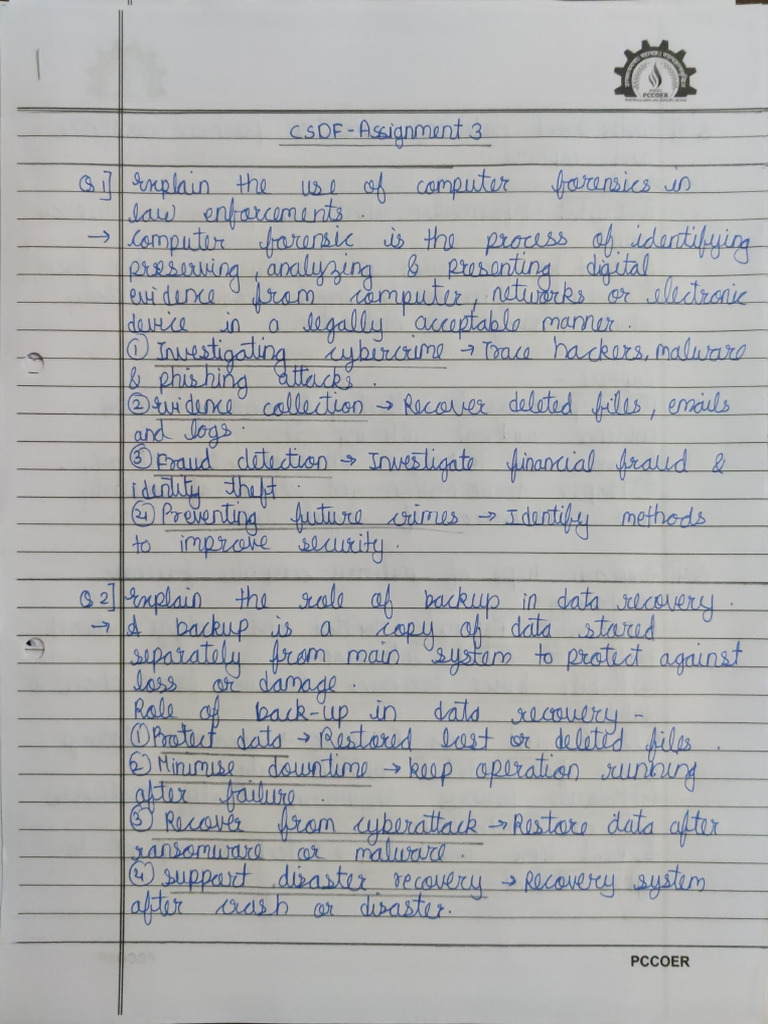 1
PCCOER
CSDF-Assignment 3
Q1] Explain the use of computer forensics in
law enforcements.
→ Computer forensic is the process of identifying
preserving, analyzing & presenting digital
evidence from computer, networks or electronic
device in a legally acceptable manner.
① Investigating cybercrime → Trace hackers, malware
& phishing attacks.
② Evidence collection → Recover deleted files, emails
and logs.
③ Fraud detection → Investigate financial fraud &
identity theft.
④ Preventing future crimes → Identify methods
to improve security.
Q2] Explain the role of backup in data recovery.
→ A backup is a copy of data stored
separately from main system to protect against
loss or damage.
Role of back-up in data recovery -
① Protect data → Restored lost or deleted files.
② Minimise downtime → keep operation running
after failure.
③ Recover from cyberattack → Restore data after
ransomware or malware.
④ Support disaster recovery → Recovery system
after crash or disaster.
PCCOER